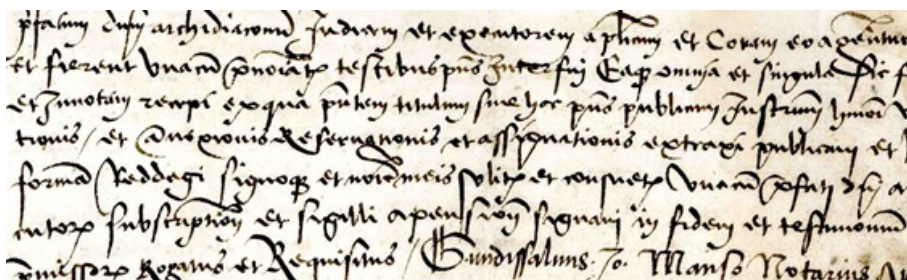 p̃fatum dñm archidiaconũ Judicem et executorem apl̃icum et Coram eo agẽntur
et fierent vnacũ p̃noĩatꝭ testibus p̃ñs Interfui Eaqꝫ omnia et singula sic f
et In notam recepi ex qua p̃ntem titulum siue hoc p̃ñs publicum Instrum̃ hmõi
tionis / et Anexionis Reseruationis et assignationis extraxi publicam et
formã Reddegi signoqꝫ et noĩe meis solitꝭ et consuetꝭ vnacũ p̃fati dñi a
cutorꝭ subscriptiõn et sigilli apensiõn signaui in fidem et testimoniũ
p̃missorꝝ Rogatus et Requisitus / Gundissaluus Jo. Mans. Notarius